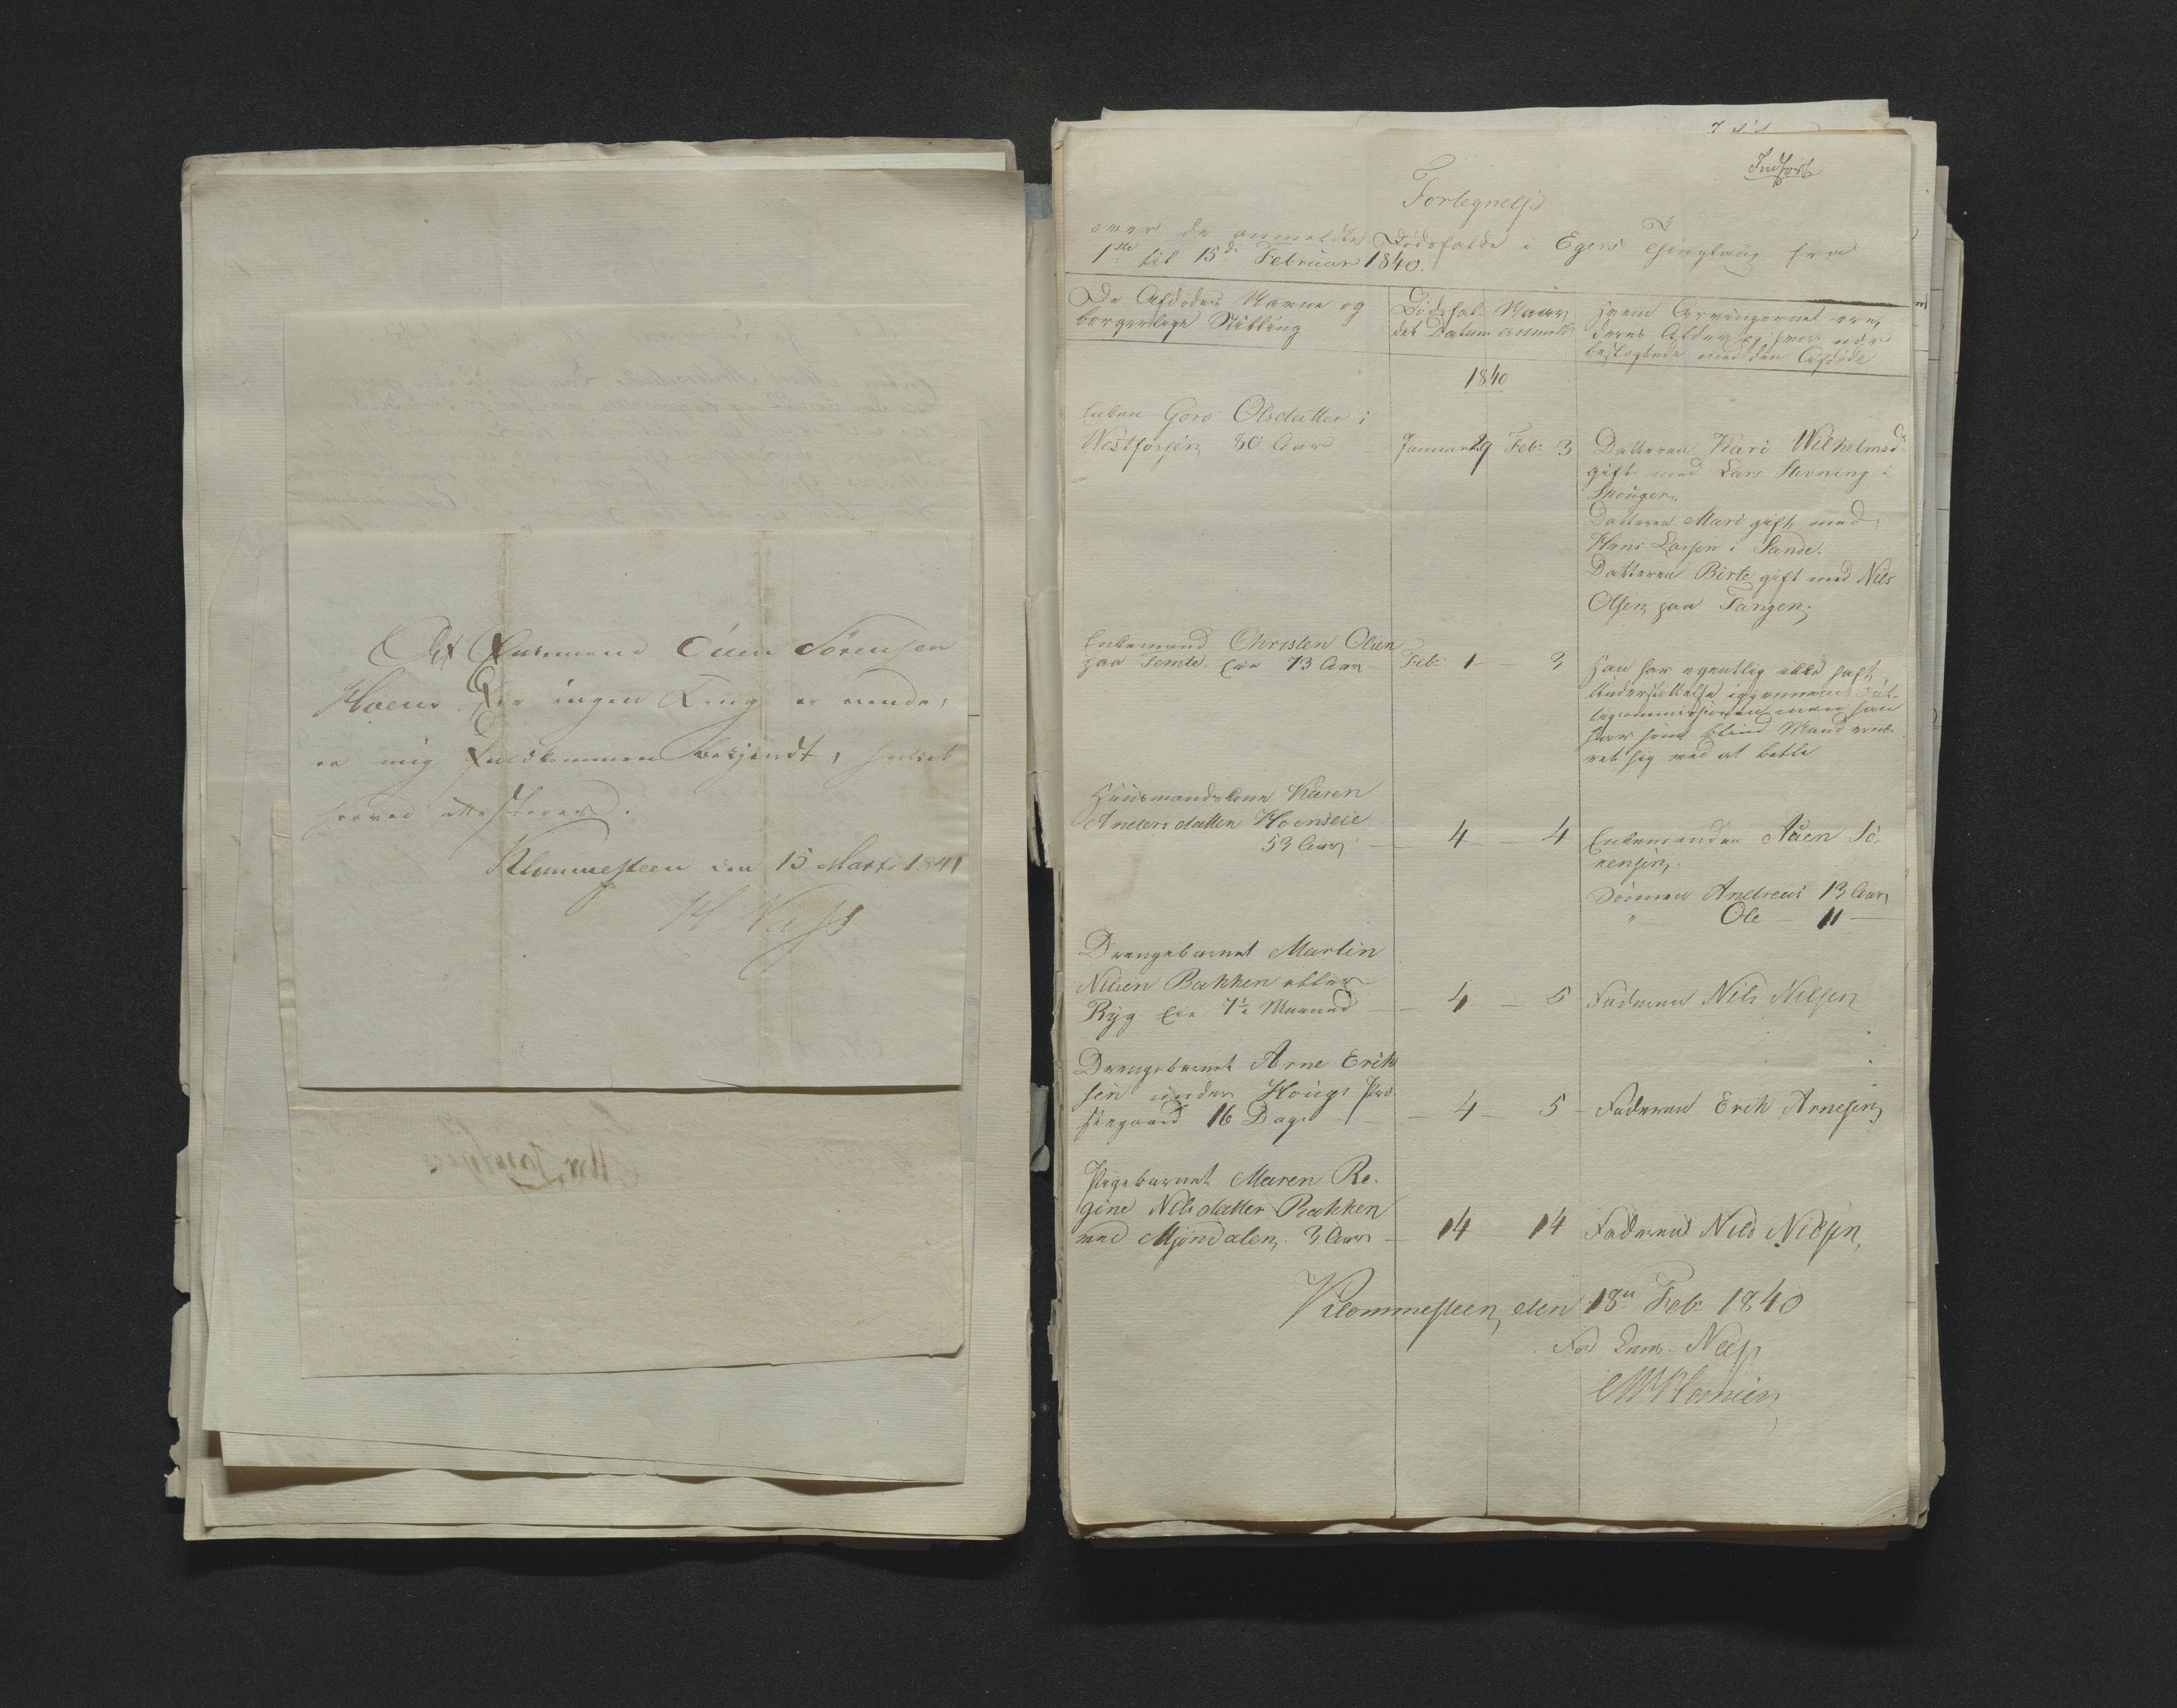 At Enkemand Auen Sörensen
Hoens Eie ingen Ting er eiende,
er mig fuldkommen bekjendt, hvilket
herved attesteres.
Klommesteen den 15 Marts 1841
H Næss
Indført
Fortegnelse
over de anmeldte Dødsfalde i Egers Thinglaug fra
1ste til 15de Februar 1840.
De Afdødes Navne og
borgerlige Stilling
Dødsfal-
dets Datum
Naar
anmeldt
Hvem Arvingerne ere,
deres Alder og hvor nær
beslægtede med den Afdøde
1840
Enken Goro Olsdatter i
Vestfossen 80 Aar
Januar 29 Feb: 3
Datteren Kari Wilhelmsd:
gift med Lars i
Skouger.
Datteren Mari gift med
Hans Larsen i Sande.
Datteren Birte gift med Nils
Olsen paa Tangen.
Enkemand Christen Olsen
paa Temte Eie 73 Aar
Feb: 1 - 3
Han har egentlig ikke haft
Understøttelse igjennem Fat-
tigcommissionen men han
har som blind Mand ernæ-
ret sig med at betle
Huusmandskone Karen
Andersdatter Hoenseie
53 Aar
- 4 - 4
Enkemanden Auen Sö-
rensen,
Sönnen Andreas 13 Aar
" Ole - 11 -
Drengebarnet Martin
Nilsen Bakken eller
Ryg Eie 7½ Maaned
- 4 - 5
Faderen Nils Nilsen
Drengebarnet Arne Erik
sen under Hougs Præ
stegaard 16 Dage
- 4 - 5
Faderen Erik Arnesen
Pigebarnet Maren Re-
gine Nilsdatter Bakken
ved Mjöndalen, 3 Aar
14 14
Faderen Nils Nilsen,
Klommesteen den 18de Feb: 1840
For Lensm. Næss